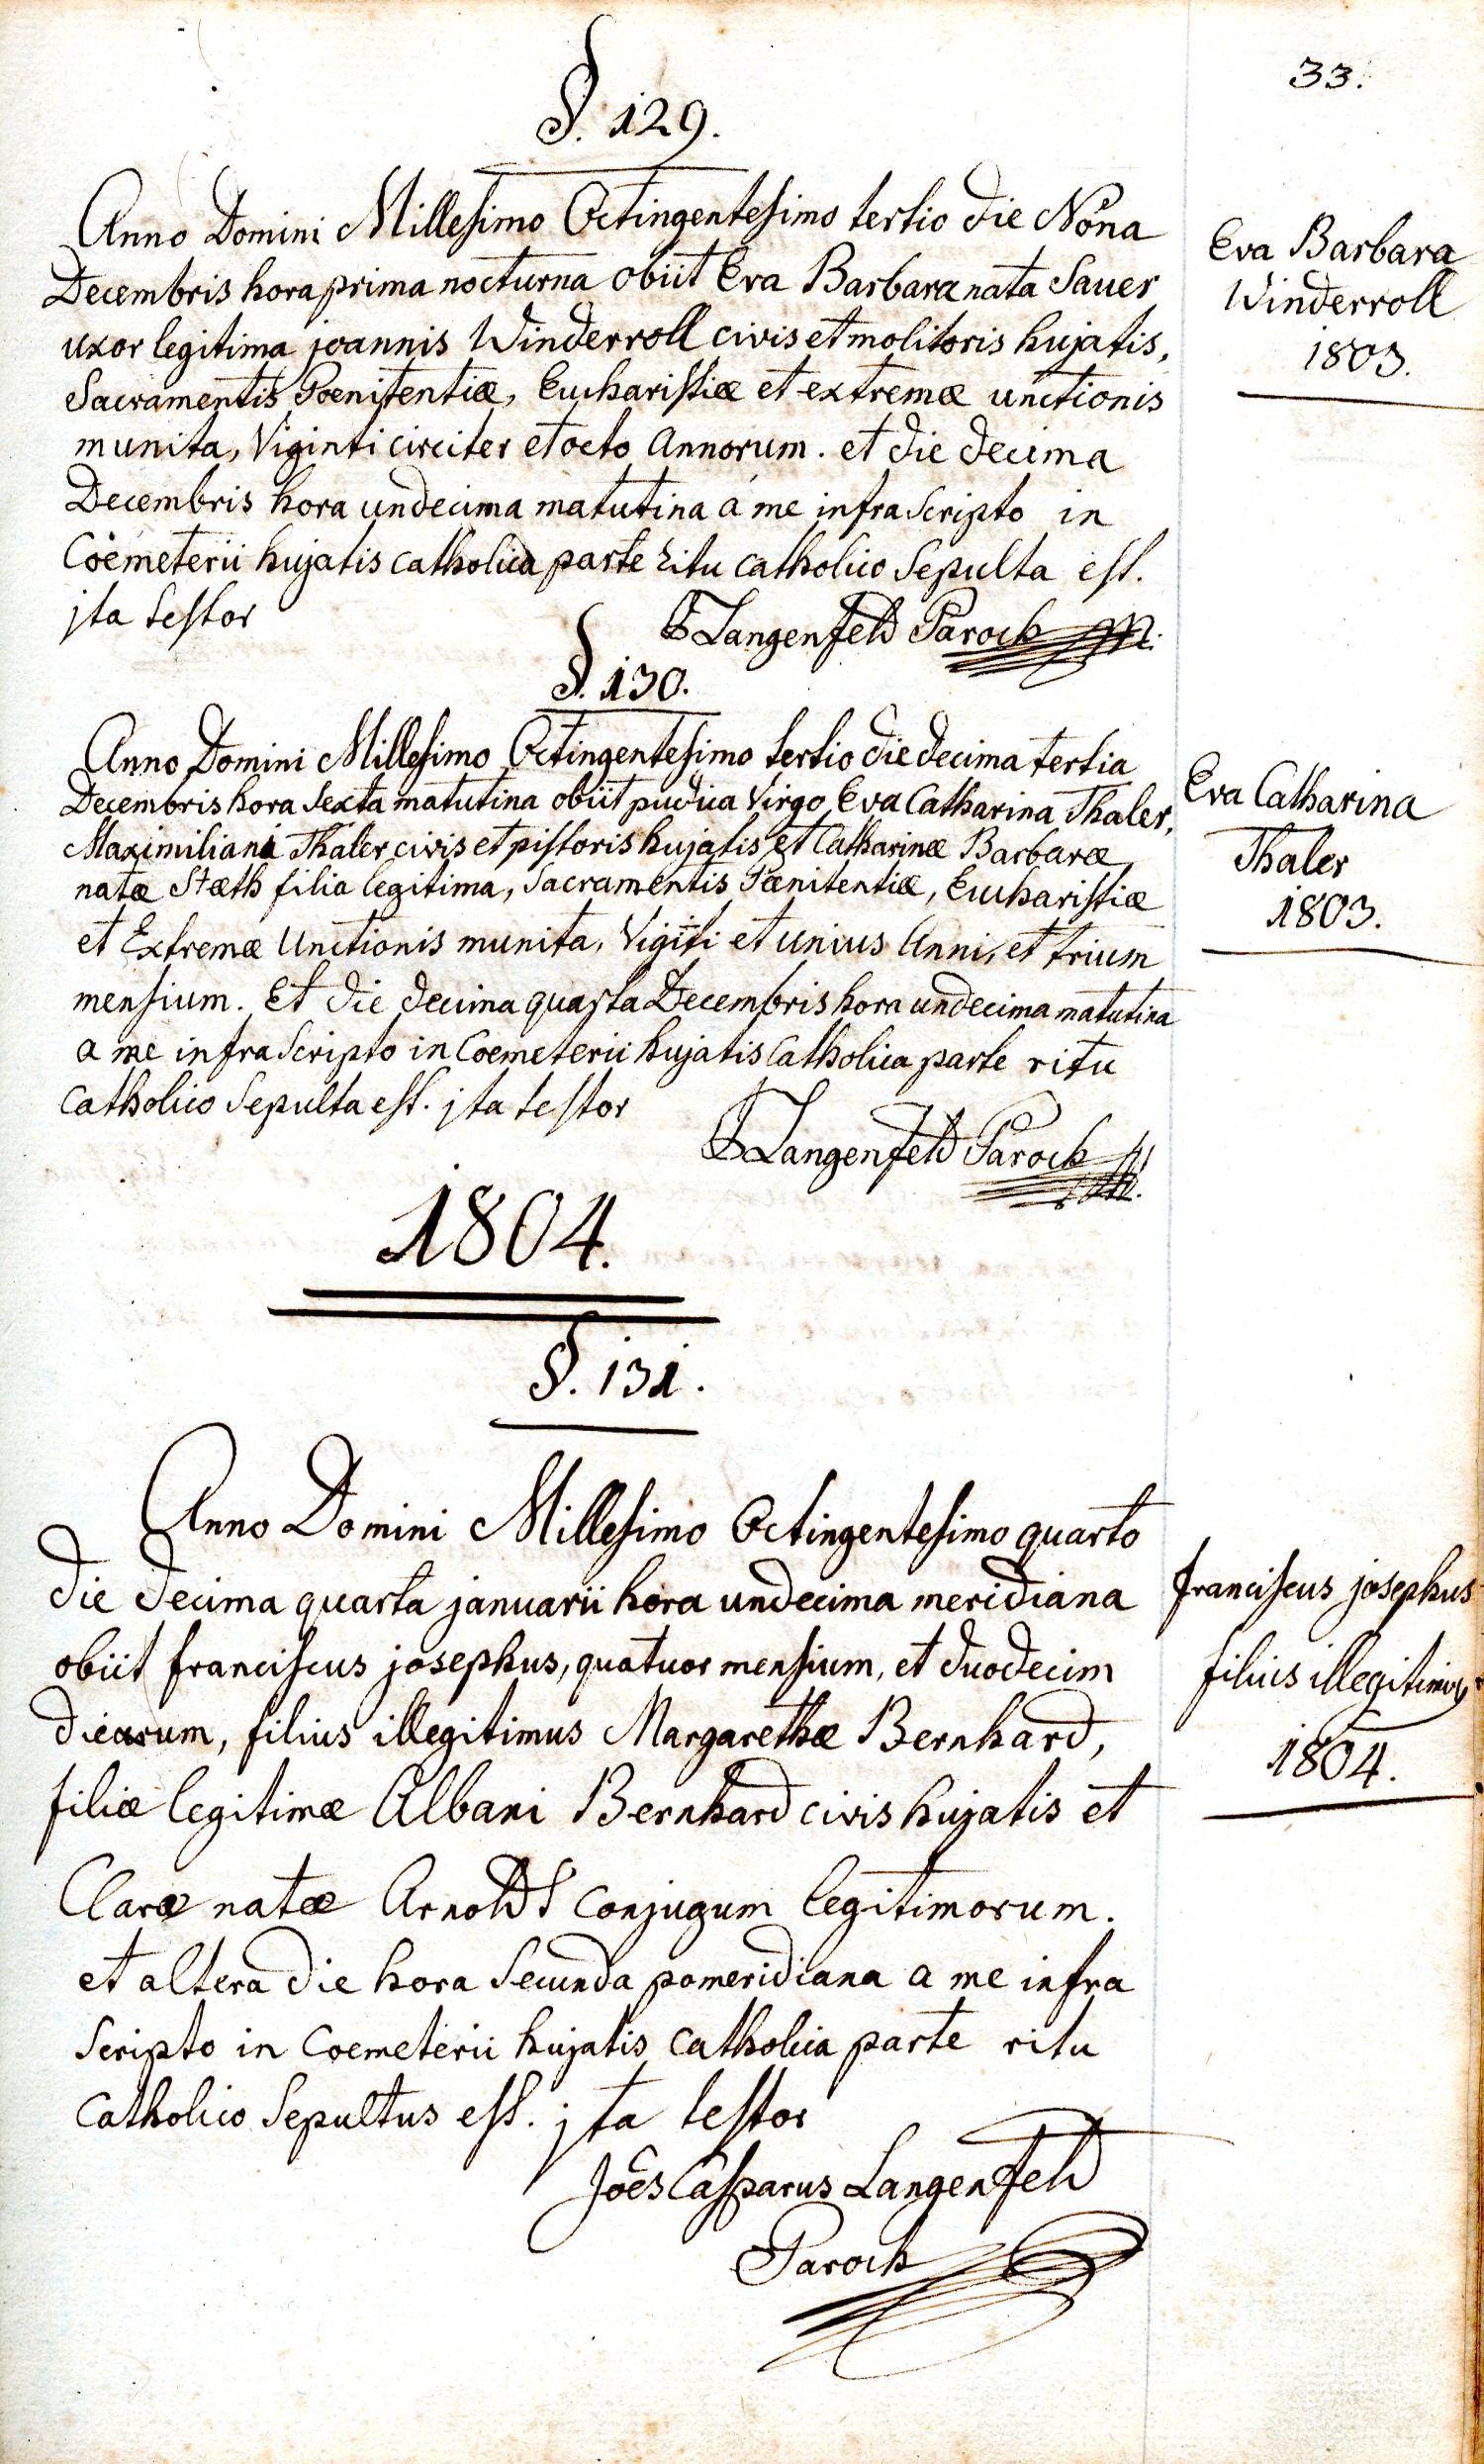 33.
§. 129.
Anno Domini Millesimo Octingentesimo tertio die Nona
Decembris hora prima nocturna obiit Eva Barbara nata Sauer
uxor legitima joannis Winderroll civis et molitoris hujatis,
Sacramentis Poenitentiæ, Eucharistiæ et extremæ unctionis
munita, Viginti circiter et octo Annorum. et die decima
Decembris hora undecima matutina á me infra Scripto in
Coemeterii hujatis catholica parte ritu catholico Sepulta est.
jta testor
Langenfeld Paroch
Eva Barbara
Winderroll
1803.
§. 130.
Anno Domini Millesimo Octingentesimo tertio die decima tertia
Decembris hora Sexta matutina obiit pudica Virgo Eva Catharina Thaler,
Maximiliani Thaler civis et pistoris hujatis et Catharinæ Barbaræ
natæ Stæth filia legitima, Sacramentis Pænitentiæ, Eucharistiæ
et Extremæ Unctionis munita, Vigiti et unius Anni, et trium
mensium. Et die decima quarta Decembris hora undecima matutina
a me infra Scripto in Coemeterii hujatis Catholica parte ritu
Catholico Sepulta est. jta testor
Langenfeld Paroch
Eva Catharina
Thaler
1803.
1804.
§. 131.
Anno Domini Millesimo Octingentesimo quarto
die decima quarta januarii hora undecima meridiana
obiit franciscus josephus, quatuor mensium, et duodecim
dierum, filius illegitimus Margarethæ Bernhard,
filiæ legitimæ Albani Bernhard civis hujatis et
Claræ natæ Arnold Conjugum legitimorum.
et altera die hora Secunda pomeridiana a me infra
Scripto in Coemeterii hujatis catholica parte ritu
Catholico Sepultus est. jta testor
Joês Casparus Langenfeld
Paroch
franciscus josephus
filius illegitimus
1804.